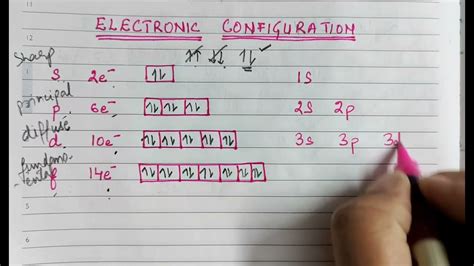 ELECTRONIC CONFIGURATION
↑↑ ↓↓ ↑↓ ✓
sharp
s 2e⁻ ↑↓ 1s
principal
p 6e⁻ ↑↓ ↑↓ ↑↓ 2s 2p
diffuse
d 10e⁻ ↑↓ ↑↓ ↑↓ ↑↓ ↑↓ 3s 3p 3d
fundamental
f 14e⁻ ↑↓ ↑↓ ↑↓ ↑↓ ↑↓ ↑↓ ↑↓